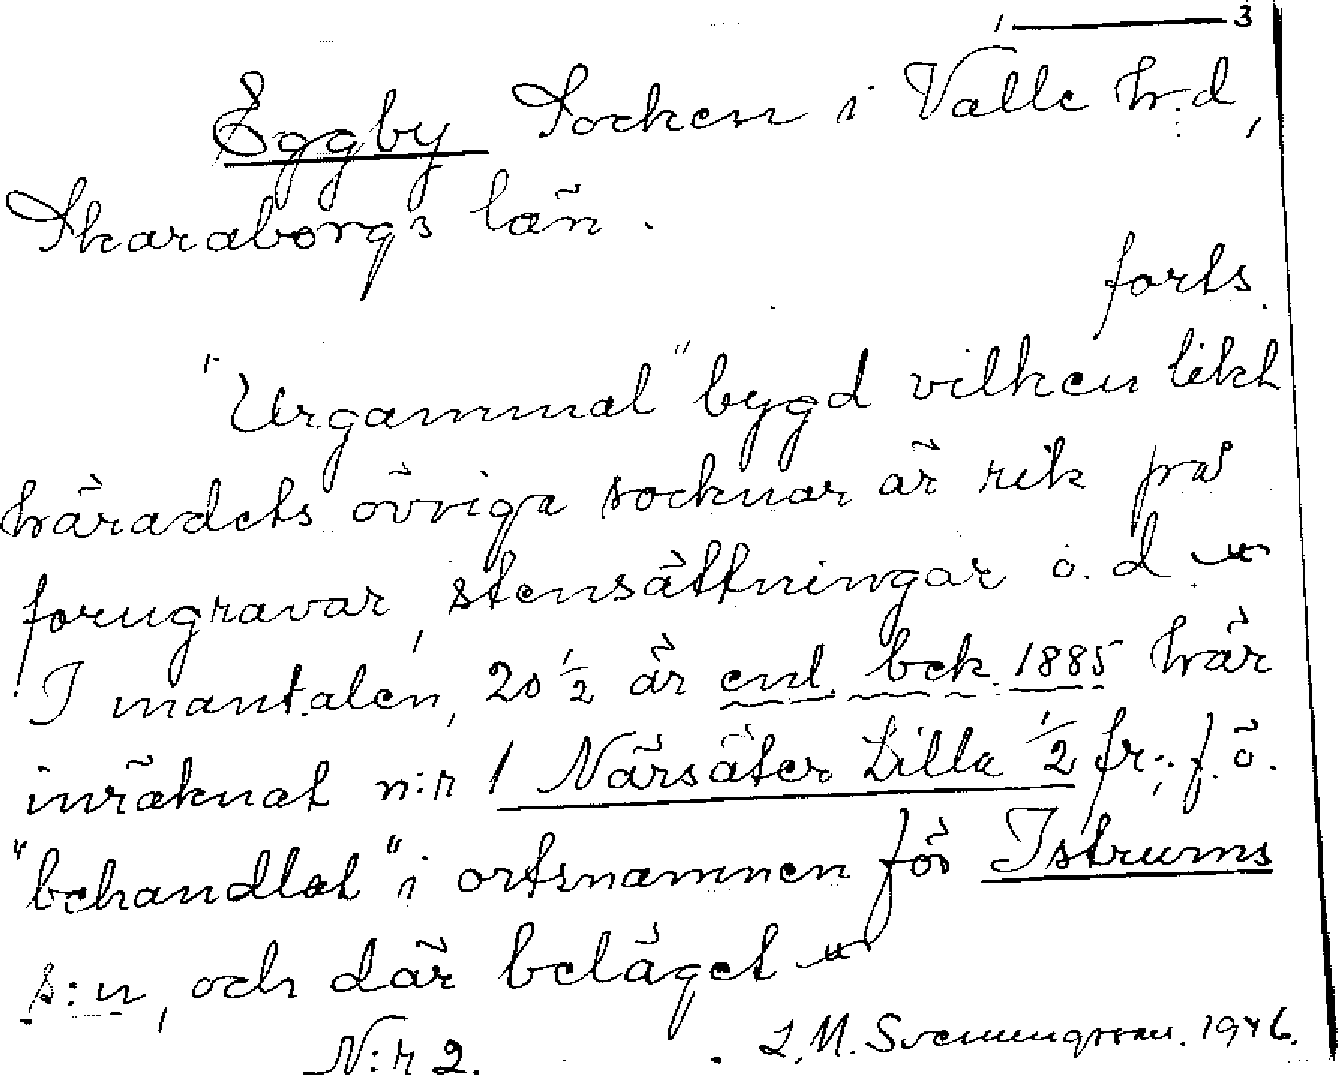 1 — 3
Eggby Socken i Valle h:d,
Skaraborgs län.
forts.
"Urgammal" bygd vilken likt
häradets övriga socknar är rik på
forngravar, stensättningar o.d.
I mantalen, 20 1/2 är enl. bek. 1885 här
inräknat n:r 1 Närsäter Lilla 1/2 fr:, f.ö.
"behandlat" i ortsnamnen för Istrums
s:n, och där beläget
N:r 2. L.M. Svenungsson. 1946.